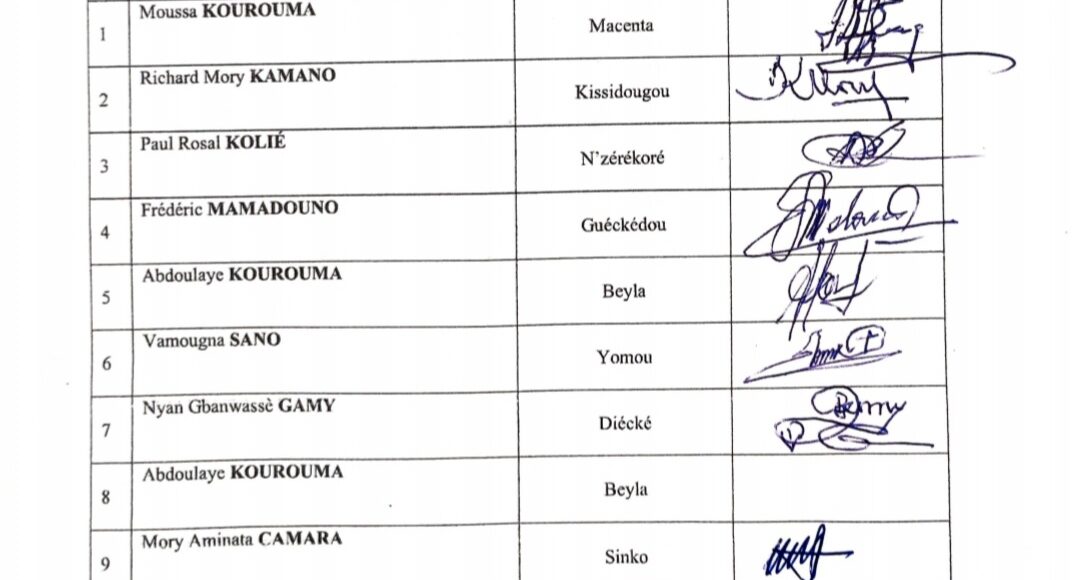 1 Moussa KOUROUMA Macenta
2 Richard Mory KAMANO Kissidougou
3 Paul Rosal KOLIÉ N'zérékoré
4 Frédéric MAMADOUNO Guéckédou
5 Abdoulaye KOUROUMA Beyla
6 Vamougna SANO Yomou
7 Nyan Gbanwassè GAMY Diécké
8 Abdoulaye KOUROUMA Beyla
9 Mory Aminata CAMARA Sinko